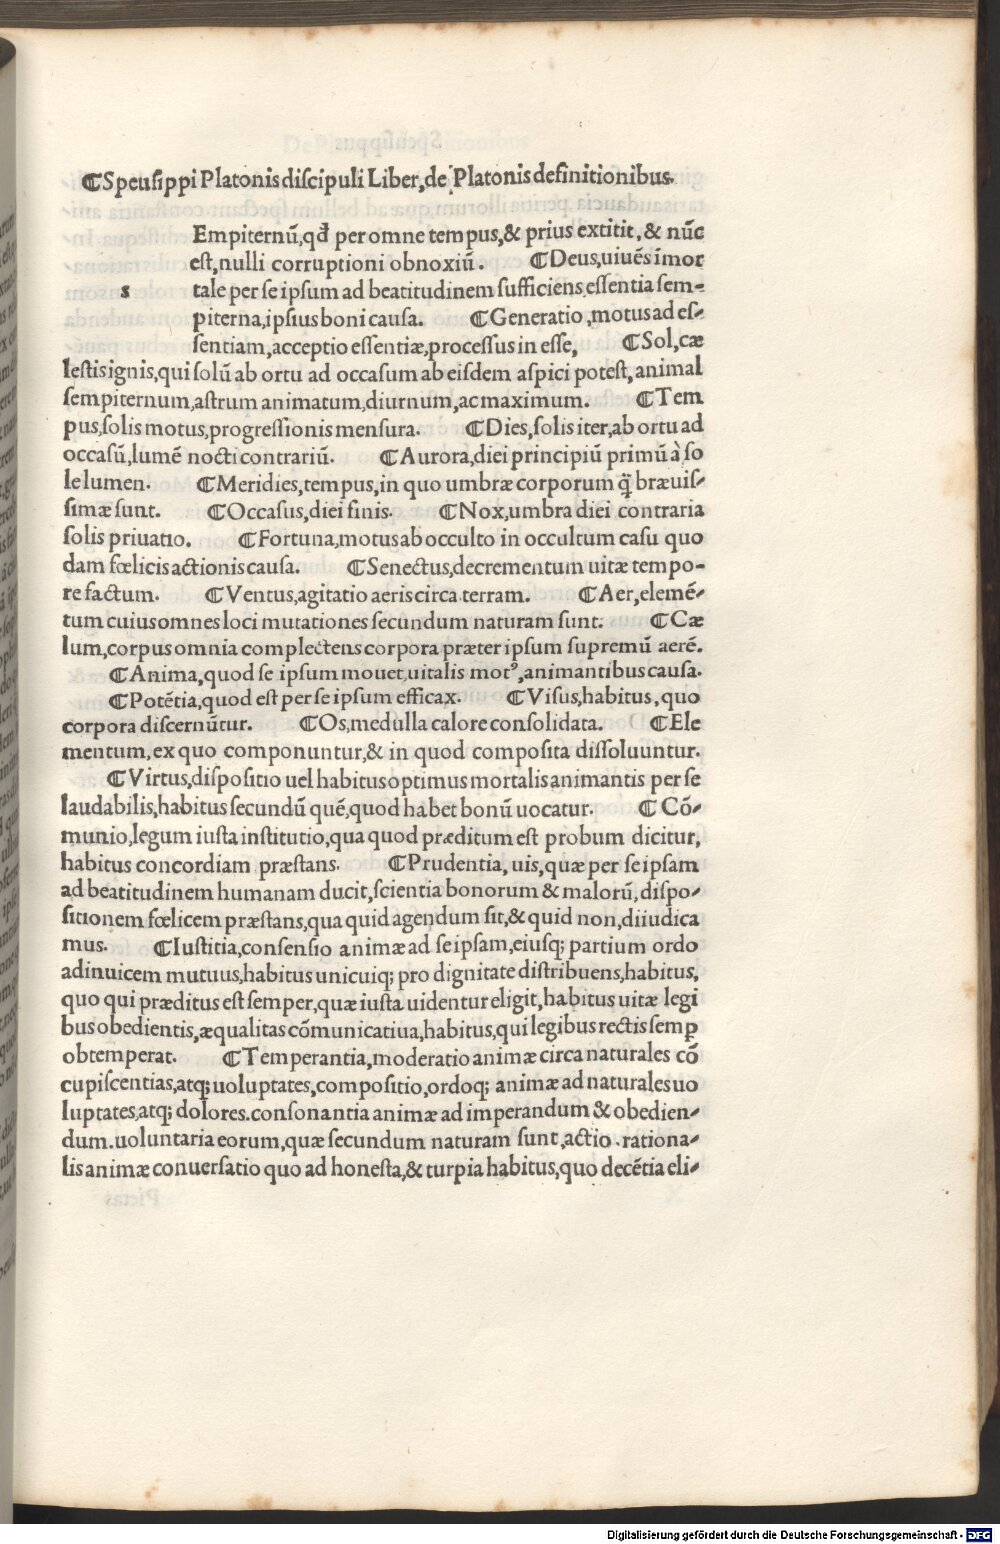 ⸿Speusippi Platonis discipuli Liber, de Platonis definitionibus.
s
Empiternũ, qđ per omne tempus, & prius extitit, & nũc
est, nulli corruptioni obnoxiũ. ⸿Deus, uiuẽs ĩmor
tale per se ipsum ad beatitudinem sufficiens, essentia sem-
piterna, ipsius boni causa. ⸿Generatio, motus ad es-
sentiam, acceptio essentiæ, processus in esse, ⸿Sol, cæ
lestis ignis, qui solũ ab ortu ad occasum ab eisdem aspici potest, animal
sempiternum, astrum animatum, diurnum, ac maximum. ⸿Tem
pus, solis motus, progressionis mensura. ⸿Dies, solis iter, ab ortu ad
occasũ, lumẽ nocti contrariũ. ⸿Aurora, diei principiũ primũ à so
le lumen. ⸿Meridies, tempus, in quo umbræ corporum q̃ bræuis-
simæ sunt. ⸿Occasus, diei finis. ⸿Nox, umbra diei contraria
solis priuatio. ⸿Fortuna, motus ab occulto in occultum casu quo
dam fœlicis actionis causa. ⸿Senectus, decrementum uitæ tempo-
re factum. ⸿Ventus, agitatio aeris circa terram. ⸿Aer, elemẽ-
tum cuius omnes loci mutationes secundum naturam sunt. ⸿Cæ
lum, corpus omnia complectens corpora præter ipsum supremũ aerẽ.
⸿Anima, quod se ipsum mouet, uitalis motꝰ, animantibus causa.
⸿Potẽtia, quod est per se ipsum efficax. ⸿Visus, habitus, quo
corpora discernũtur. ⸿Os, medulla calore consolidata. ⸿Ele
mentum, ex quo componuntur, & in quod composita dissoluuntur.
⸿Virtus, dispositio uel habitus optimus mortalis animantis per se
laudabilis, habitus secundũ quẽ, quod habet bonũ uocatur. ⸿Cõ-
munio, legum iusta institutio, qua quod præditum est probum dicitur,
habitus concordiam præstans. ⸿Prudentia, uis, quæ per se ipsam
ad beatitudinem humanam ducit, scientia bonorum & malorũ, dispo-
sitionem fœlicem præstans, qua quid agendum sit, & quid non, diiudica
mus. ⸿Iustitia, consensio animæ ad se ipsam, eiusq; partium ordo
adinuicem mutuus, habitus unicuiq; pro dignitate distribuens, habitus,
quo qui præditus est semper, quæ iusta uidentur eligit, habitus uitæ legi
bus obedientis, æqualitas cõmunicatiua, habitus, qui legibus rectis semꝑ
obtemperat. ⸿Temperantia, moderatio animæ circa naturales cõ
cupiscentias, atq; uoluptates, compositio, ordoq; animæ ad naturales uo
luptates, atq; dolores. consonantia animæ ad imperandum & obedien-
dum. uoluntaria eorum, quæ secundum naturam sunt, actio. rationa-
lis animæ conuersatio quo ad honesta, & turpia habitus, quo decẽtia eli-
Digitalisierung gefördert durch die Deutsche Forschungsgemeinschaft - DFG